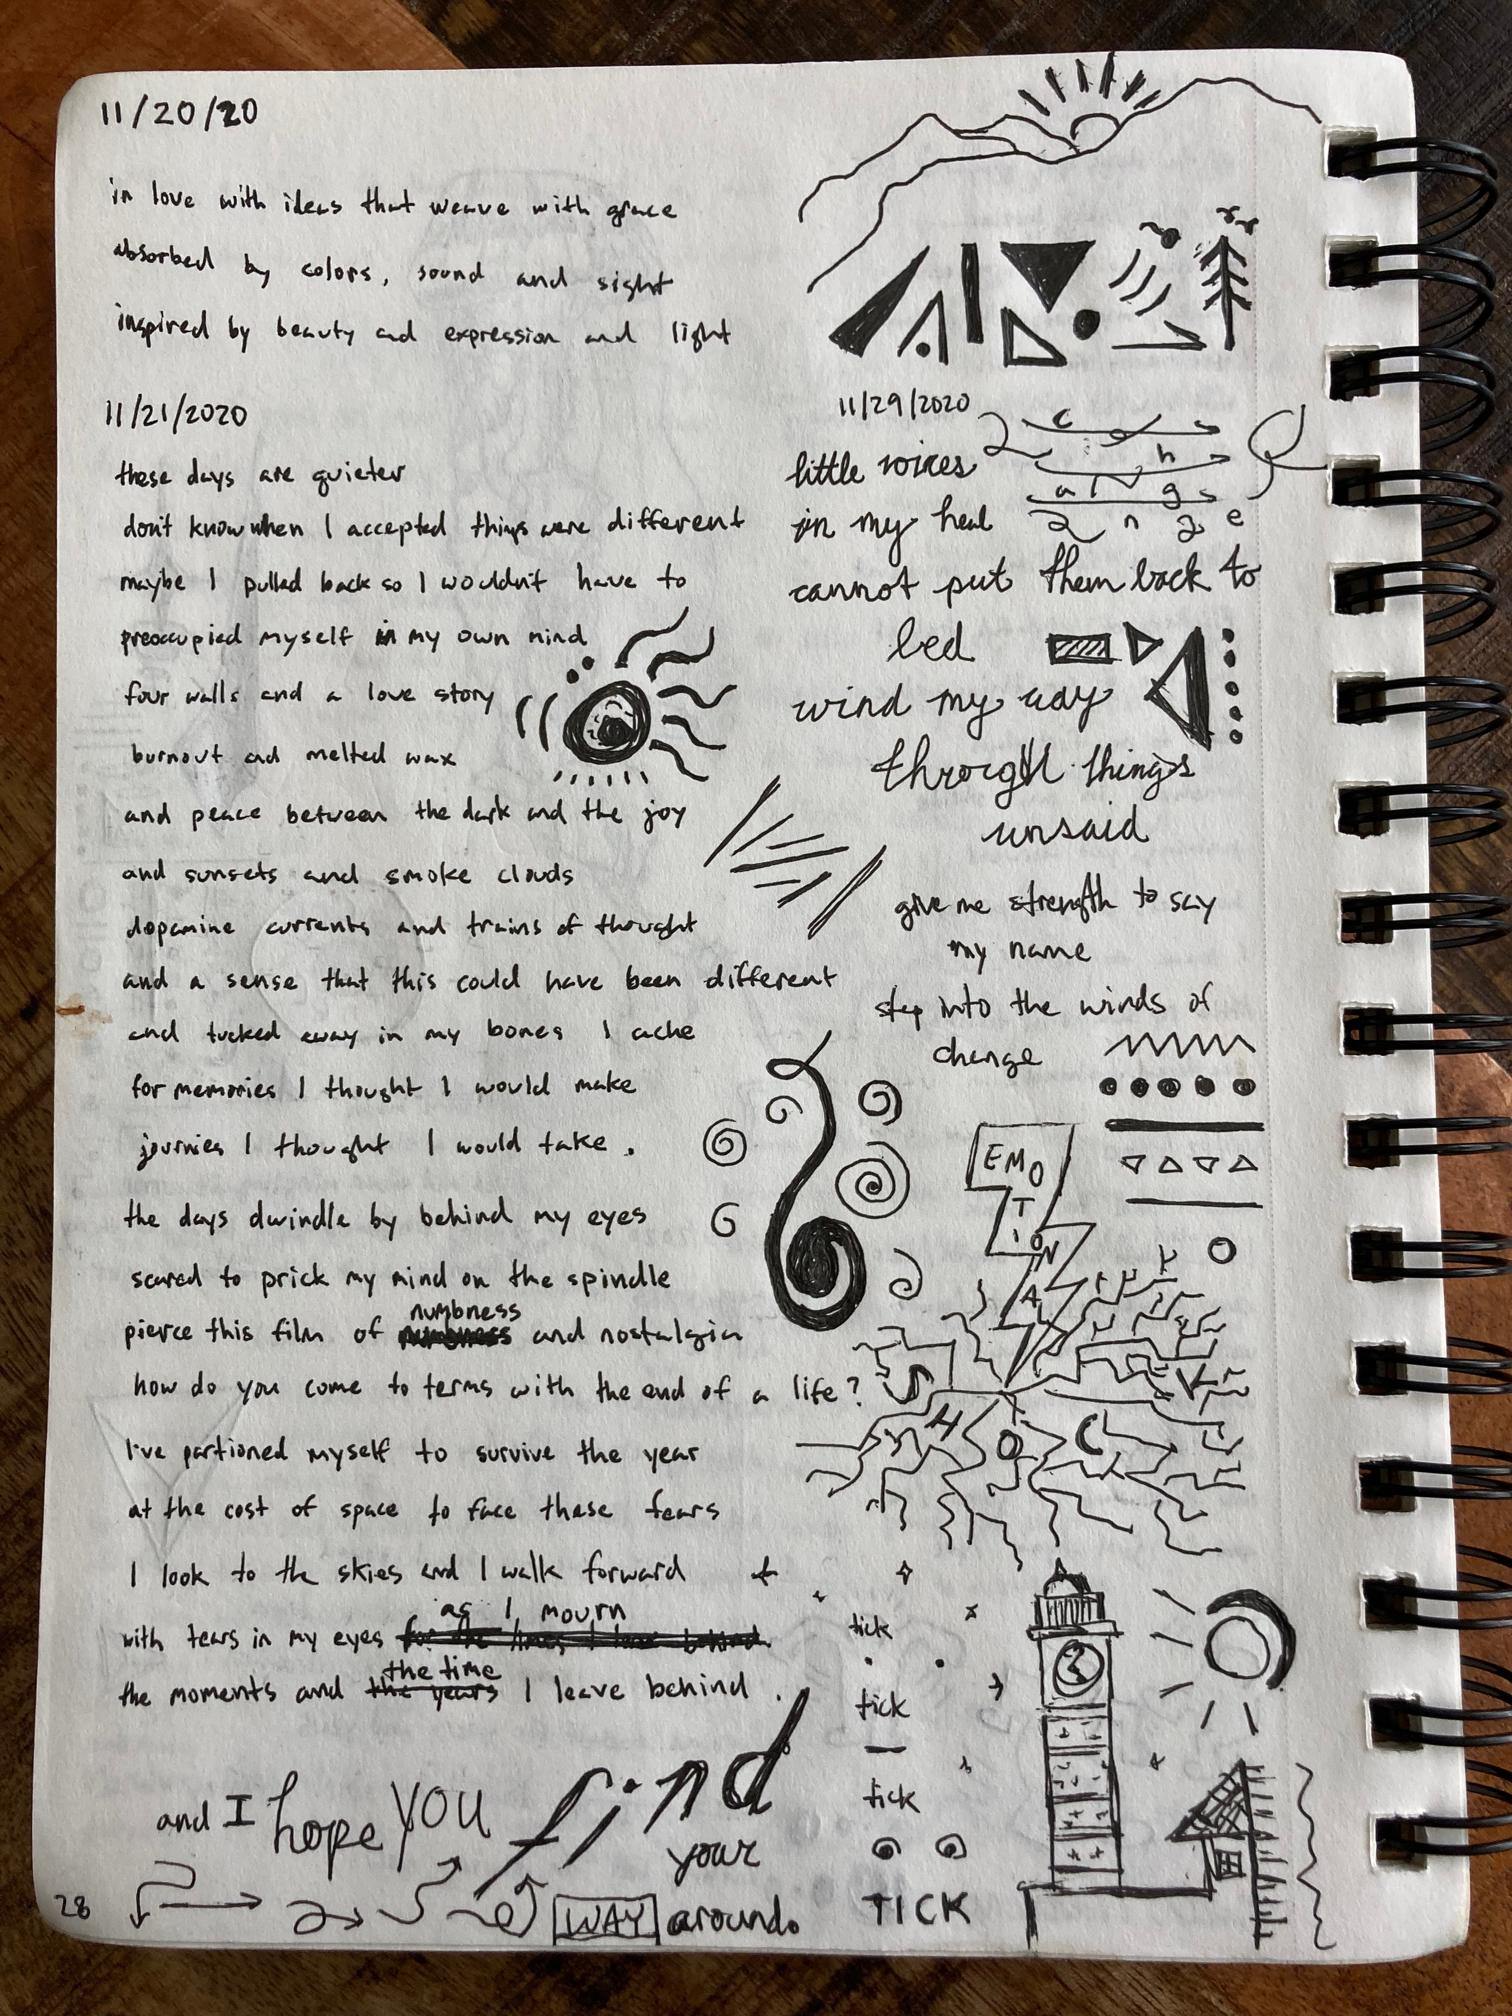 11/20/20
in love with ideas that weave with grace
absorbed by colors, sound and sight
inspired by beauty and expression and light
11/21/2020
these days are quieter
don't know when I accepted things were different
maybe I pulled back so I wouldn't have to
preoccupied myself in my own mind
four walls and a love story
burnout and melted wax
and peace between the dark and the joy
and sunsets and smoke clouds
dopamine currents and trains of thought
and a sense that this could have been different
and tucked away in my bones I ache
for memories I thought I would make
journies I thought I would take.
the days dwindle by behind my eyes
scared to prick my mind on the spindle
pierce this film of numbness and nostalgia
how do you come to terms with the end of a life?
I've partioned myself to survive the year
at the cost of space to face these fears
I look to the skies and I walk forward
with tears in my eyes as I mourn
the moments and the time I leave behind.
and I hope YOU find
your
WAY around.
28
11/29/2020
change
little voices
in my head
cannot put them back to
bed
wind my way
through things
unsaid
give me strength to say
my name
step into the winds of
change
EMOTIONAL
SHOCK
tick
tick
tick
TICK